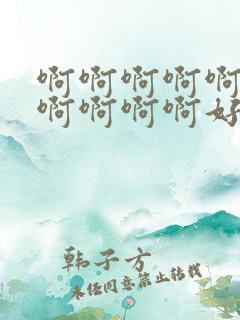 啊啊啊啊啊
啊啊啊啊好
韩子方
未经同意禁止转载